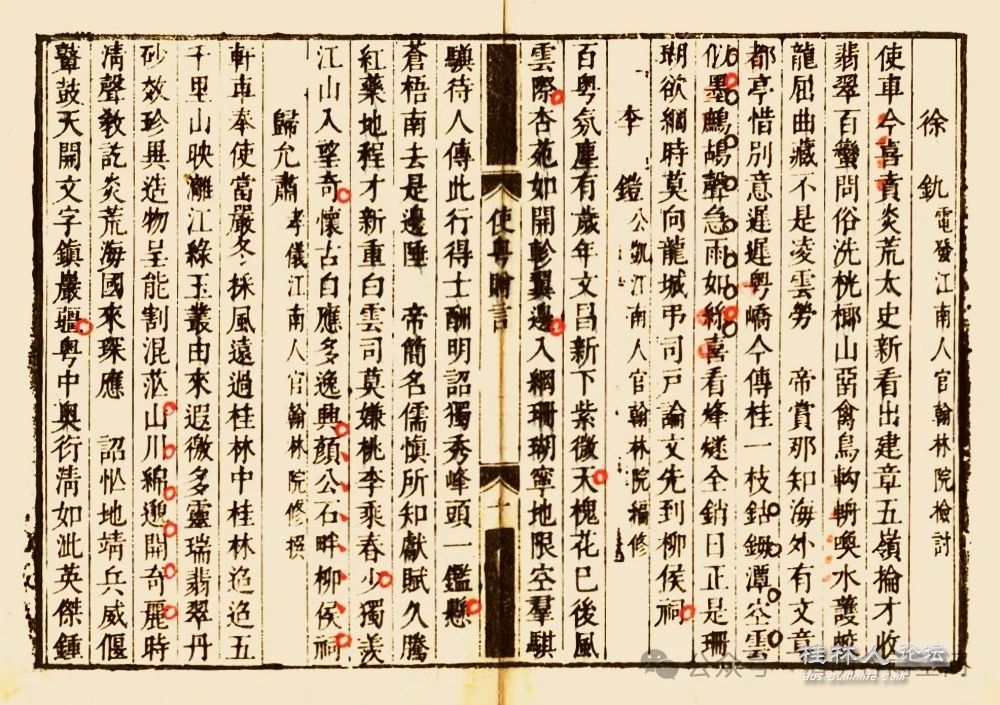 徐釚電發江南人官翰林院檢討
使車今喜賁炎荒太史新看出建章五嶺掄才收
翡翠百蠻問俗洗桄榔山臨禽鳥軥輈喚水護蛟
龍屈曲藏不是凌雲勞　帝賞那知海外有文章
都亭惜別意遲遲粵嶠今傳桂一枝鈷鉧潭空雲
似墨鷓鴣聲急雨如絲喜看烽燧全銷日正是珊
瑚欲網時莫向龍城弔司戶論文先到柳侯祠
李鎧公凱江南人官翰林院編修
百粵氛塵有歲年文昌新下紫微天槐花巳後風
雲際杏苑如開軫翼邊入網珊瑚寧地限空羣騏
驥待人傳此行得士酬明詔獨秀峰頭一鑑懸
蒼梧南去是邊陲　帝簡名儒慎所知獻賦久騰
紅藥地程才新重白雲司莫嫌桃李乘春少獨羨
江山入望奇懷古自應多逸興顏公石畔柳侯祠
歸允肅孝儀江南人官翰林院修撰
軒車奉使當嚴冬採風遠過桂林中桂林迢迢五
千里山映灕江綠玉叢由來遐徼多靈瑞翡翠丹
砂效珍異造物呈能割混茫山川綿邈開奇麗時
清聲教訖炎荒海國來琛應　詔忙地靖兵威偃
鼙鼓天開文字鎮巖疆粵中奧衍清如沘英傑鍾
使粵贈言
十
公众号
桂林人论坛
bbs.guilinlife.com